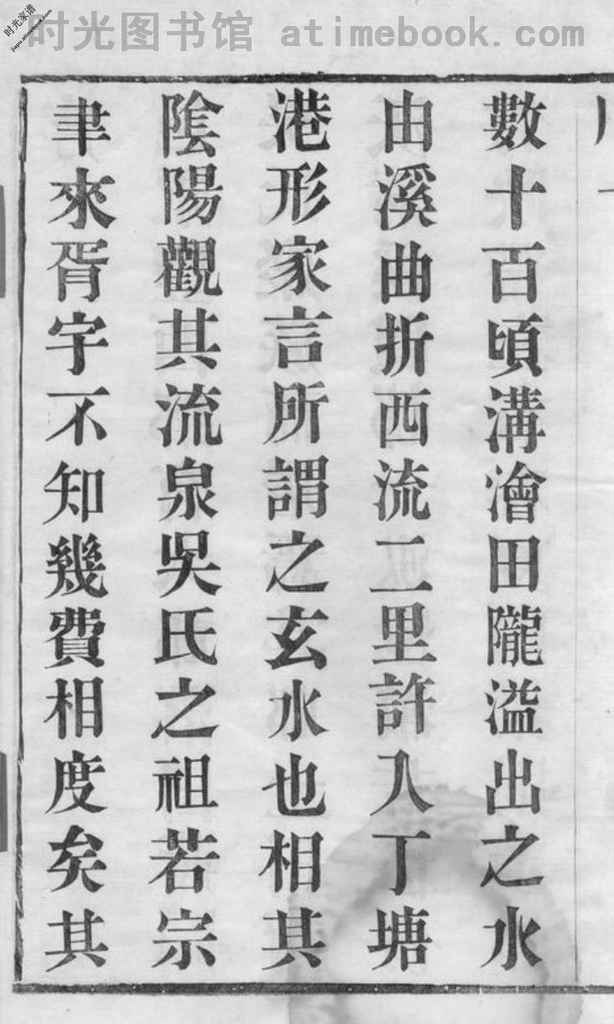 时光图书馆 atimebook.com
时光家谱
數十百頃溝澮田隴溢出之水
由溪曲折西流二里許入丁塘
港形家言所謂之玄水也相其
陰陽觀其流泉吳氏之祖若宗
聿來胥宇不知幾費相度矣其